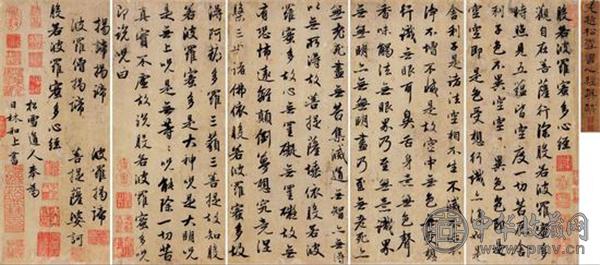 元趙松雪書心經真跡
般若波羅蜜多心經
觀自在菩薩行深般若波羅蜜多
時照見五蘊皆空度一切苦厄舍
利子色不異空空不異色色即是
空空即是色受想行識亦復如是
舍利子是諸法空相不生不滅不垢
淨不增不減是故空中無色無受想
行識無眼耳鼻舌身意無色聲
香味觸法無眼界乃至無意識界
無無明亦無無明盡乃至無老死亦
無老死盡無苦集滅道無智亦無得
以無所得故菩提薩埵依般若波
羅蜜多故心無罣礙無罣礙故無
有恐怖遠離顛倒夢想究竟涅
槃三世諸佛依般若波羅蜜多故
得阿耨多羅三藐三菩提故知般
若波羅蜜多是大神咒是大明咒
是無上咒是無等等咒能除一切苦
真實不虛故說般若波羅蜜多咒
即說咒曰
揭諦揭諦 波羅揭諦
波羅僧揭諦 菩提薩婆訶
般若波羅蜜多心經
松雪道人奉為
日林和上書
中华收藏网
www.pmv.cn